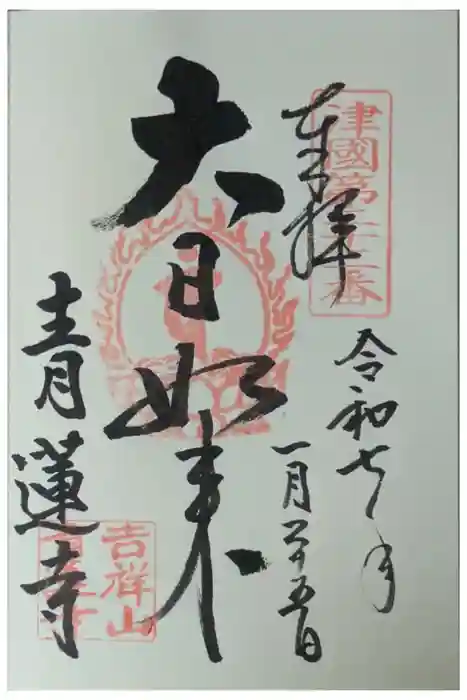 津國第三十三番
奉拝
令和七年
一月二十五日
大日如来
青蓮寺
吉祥山
青蓮寺